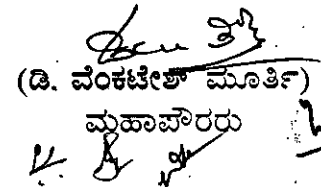 (ಡಿ. ವೆಂಕಟೇಶ್ ಮೂರ್ತಿ)
ಮಹಾಪೌರರು